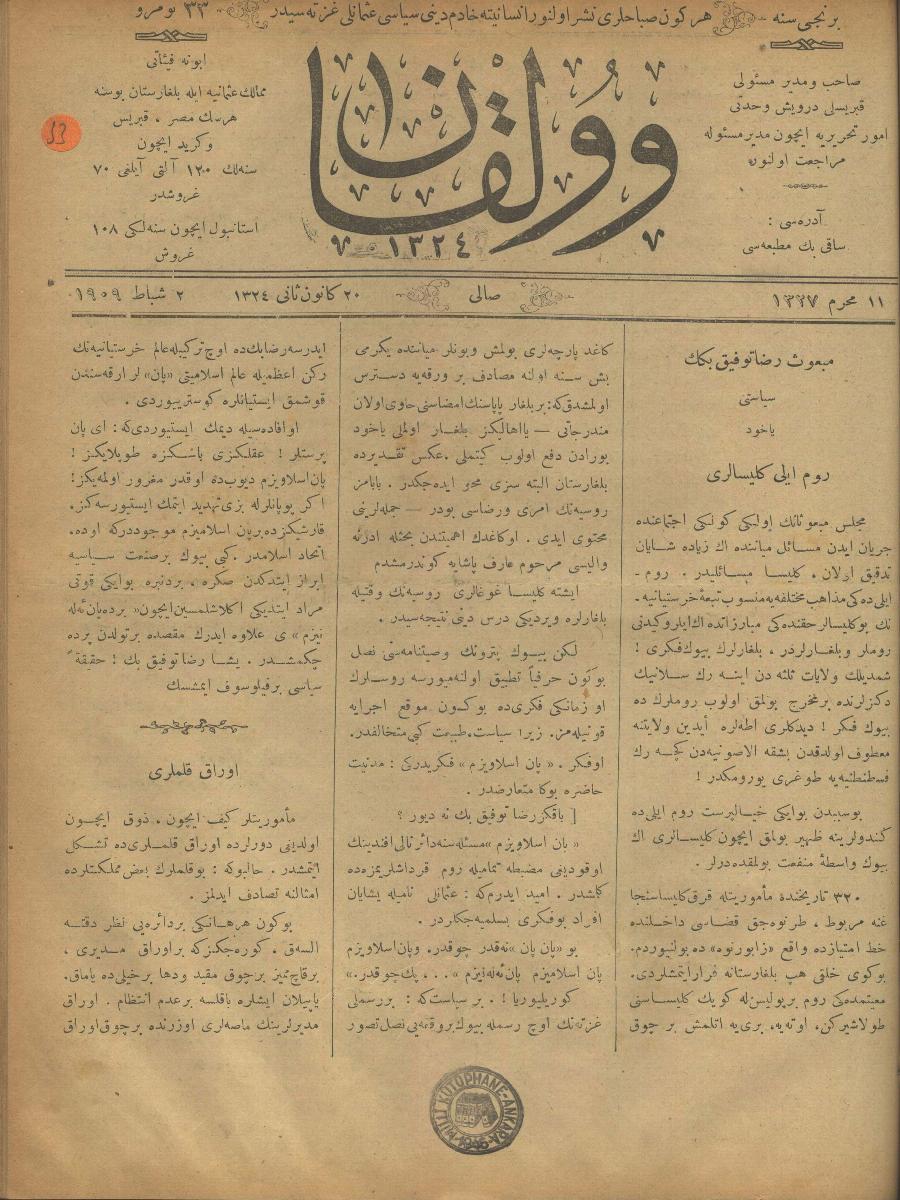 برنجی سنه
هر كون صباحلری نشر اولنور انسانیته خادم دینی سیاسی عثمانلی غزته سیدر
٣٣ نومرو
صاحب ومدیر مسئولی
قبریسلی درویش وحدتی
امور تحریریه ایچون مدیر مسئوله
مراجعت اولنور
آدره‌سی :
ساقی بك مطبعه‌سی
وولقان
١٣٢٤
ابونه فیئاتی
ممالك عثمانیه ایله بلغارستان بوسنه
هرسك مصر ، قبریس
وكرید ایچون
سنه‌لك ١٢٠ آلتی آیلغی ٧٠
غروشدر
استانبول ایچون سنه‌لكی ١٠٨
غروش
33
١١ محرم ١٣٢٧
صالی
٢٠ كانون ثانی ١٣٢٤
٢ شباط ١٩٠٩
مبعوث رضا توفیق بكك
سیاستی
یاخود
روم ایلی كلیسالری
مجلس مبعوثانك اولیكی كونكی اجتماعنده
جریان ایدن مسائل میاننده اك زیاده شایان
تدقیق اولان ، كلیسا مسائلیدر . روم ـ
ایلی‌ده‌كی مذاهب مختلفه‌یه منسوب تبعۀ خرستیانیه ـ
نك بوكلیسالر حقنده‌كی مبارزاتده اك ایلروكیدنی
روملر وبلغارلردر ، بلغارلرك بیوك فكری !
شمدیلك ولایات ثلثه دن اینه رك سلانیك
دكزلرنده برمخرج بولمق اولوب روملرك ده
بیوك فكر ! دیدكلری اطه‌لره آیدین ولایتنه
معطوف اولدقدن بشقه الاصونیه‌دن كچه رك
قسطنطنیه‌یه طوغری یورومكدر !
بوسببدن بوایكی خیالپرست روم ایلی‌ده
كندولرینه ظهیر بولمق ایچون كلیسالری اك
بیوك واسطۀ منفعت بولمقده‌درلر .
٣٢٠ تاریخنده مأموریتله قرق كلیسا سنجا
غنه مربوط ، طرنوه‌جق قضاسی داخلنده
خط امتیازده واقع «زابورنوه» ده بولنیوردم.
بوكوی خلقی هپ بلغارستانه فرار ایتمشلردی.
معیتمده‌كی روم برپولیس‌له كویك كلیساسنی
طولاشیركن، اوته‌یه، بری‌یه آتلمش بر چوق
كاغد پارچه‌لری بولمش وبونلر میاننده یكرمی
بش سنه اولنه مصادف بر ورقه‌یه دسترس
اولمشدق‌كه: بربلغار پاپاسنك امضاسنی حاوی اولان
مندرجاتی — یا اهالیكز بلغار اولملی یاخود
بورادن دفع اولوب كیتملی . عكس تقدیرده
بلغارستان البته سزی محو ایده‌جكدر . بابامز
روسیه‌نك امری ورضاسی بودر — جمله‌لرینی
محتوی ایدی . اوكاغدك اهمیتندن بحثله ادرنه
والیسی مرحوم عارف پاشایه كوندرمشدم
ایشته كلیسا غوغالری روسیه‌نك وقتیله
بلغارلره ویردیكی درس دینی نتیجه‌سیدر .
لكن بیوك پترونك وصیتنامه‌سی نصل
بوكون حرفیاً تطبیق اولنه‌میورسه روسلرك
او زمانكی فكری ده بوكون موقع اجرایه
قونیله‌مز. زیرا سیاست، طبیعت كبی متخالفدر.
اوفكر . « پان اسلاویزم » فكریدركی : مدنیت
حاضره بوكا متعارضدر .
[ باقكز رضا توفیق بك نه دیور ؟
« پان اسلاویزم » مسئله‌سنه دائر نالی افندینك
اوقودیغی مضبطه تمامیله روم قرداشلریمزه‌ده
كلمشدر . امید ایدرم‌كه : عثمانلی نامیله یشایان
افراد بوفكری بسلمیه‌جكلردر .
بو «پان پان» نه‌قدر چوقدر. وپان اسلاویزم
پان اسلامیزم پان‌ئه‌له‌نیزم » . . ، پك چوقدر.»
كوریلیوریا ! . بر سیاست‌كه : بررسملی
غزته‌نك اوچ رسمله بیوك بروقعه‌یی نصل تصور
ایدرسه رضا بك‌ده اوچ تركیبله عالم خرستیانیه‌نك
ركن اعظمیله عالم اسلامیتی «پان» لر ارقه‌سندن
قوشمق ایستیانلره كوستریبوردی .
او افاده‌سیله دیمك ایستیوردی‌كه : ای پان
پرستلر ! عقلكزی باشكزه طوپلایكز !
پان اسلاویزم دیوب‌ده اوقدر مغرور اولمه‌یكز!
اكر بوپانلرله بزی تهدید ایتمك ایستیورسه‌كز.
قارشیكزده برپان اسلامیزم موجوددركه اوده.
اتحاد اسلامدر . كبی بیوك برصنعت سیاسیه
ابراز ایتدكدن صكره ، بردنبره بوایكی قوتی
مراد ایتدیكی اكلاشلمسین ایچون «برده پان‌ئه‌له
نیزم» ی علاوه ایدرك مقصده برتولدن پرده
چكمشدر . یشا رضا توفیق بك ! حقیقةً
سیاسی برفیلوسوف ایمشسك
اوراق قلملری
مأموریتلر كیف ایچون ، ذوق ایچون
اولدیغی دورلرده اوراق قلملری‌ده تشكل
ایتمشدر . حالبوكه : بوقلملرك بعض مملكتلرده
امثالنه تصادف ایدلمز .
بوكون هرهانكی بردائره‌یی نظر دقته
السه‌ق . كوره‌جكزكه براوراق مدیری ،
برقاچ ممیز برچوق مقید ودها برخیلی‌ده یاماق.
یاپیلان ایشلره باقلسه برعدم انتظام . اوراق
مدیرلرینك ماصه‌لری اوزرنده برچوق اوراق
MİLLİ KÜTÜPHANE-ANKARA
1946